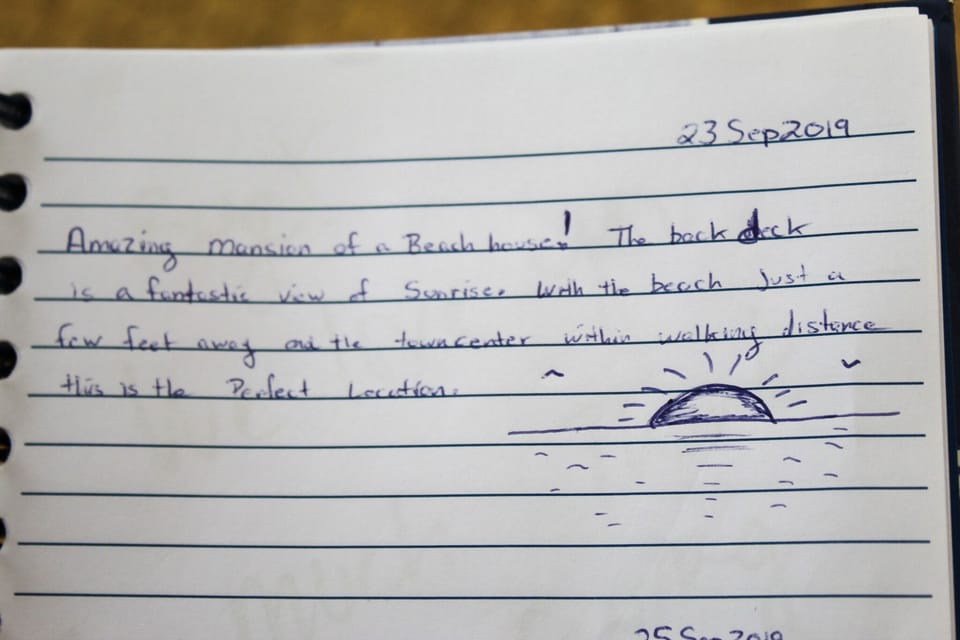 23 Sep 2019
Amazing mansion of a Beach house! The back deck
is a fantastic view of Sunrise. With the beach just a
few feet away and the towncenter within walking distance
this is the Perfect Location.
25 Sep 2019